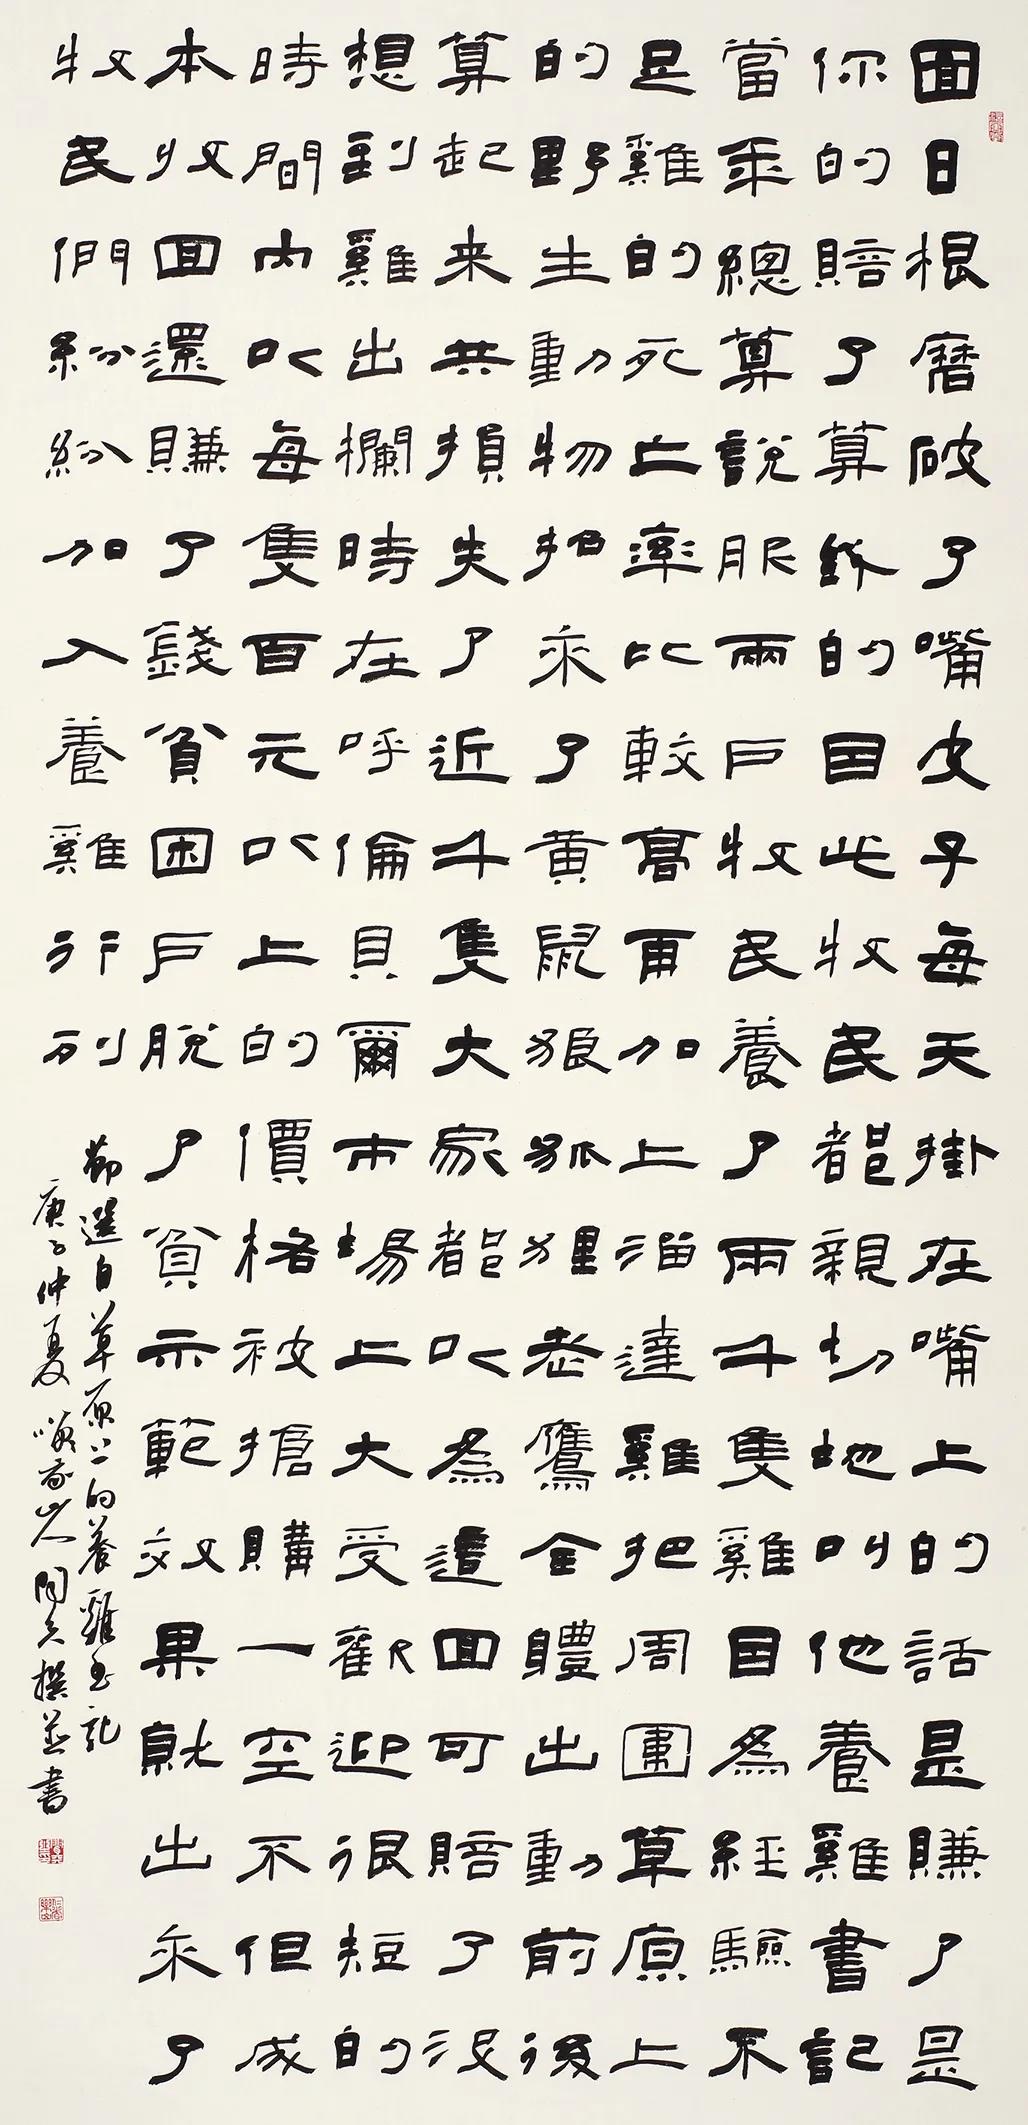 圖日根磨破了嘴皮子每天掛在嘴上的話是賺了是
你的賠了算我的因此牧民都親切地叫他養雞書記
當年總算說服兩户牧民養了兩千隻雞因為經驗不
足雞的死亡率比較高再加上溜達雞把周圍草原上
的野生動物招來了黄鼠狼狐狸老鷹全體出動前後
算起来共損失了近千隻大家都以為這回可賠了没
想到雞出欄時在呼倫貝爾市場上大受歡迎很短的
時間内以每隻百元以上的價格被搶購一空不但成
本收回還賺了錢貧困户脱了貧示範效果就出來了
牧民們紛紛加入養雞行列
節選自草原上的養雞書記
庚子仲夏撰並書